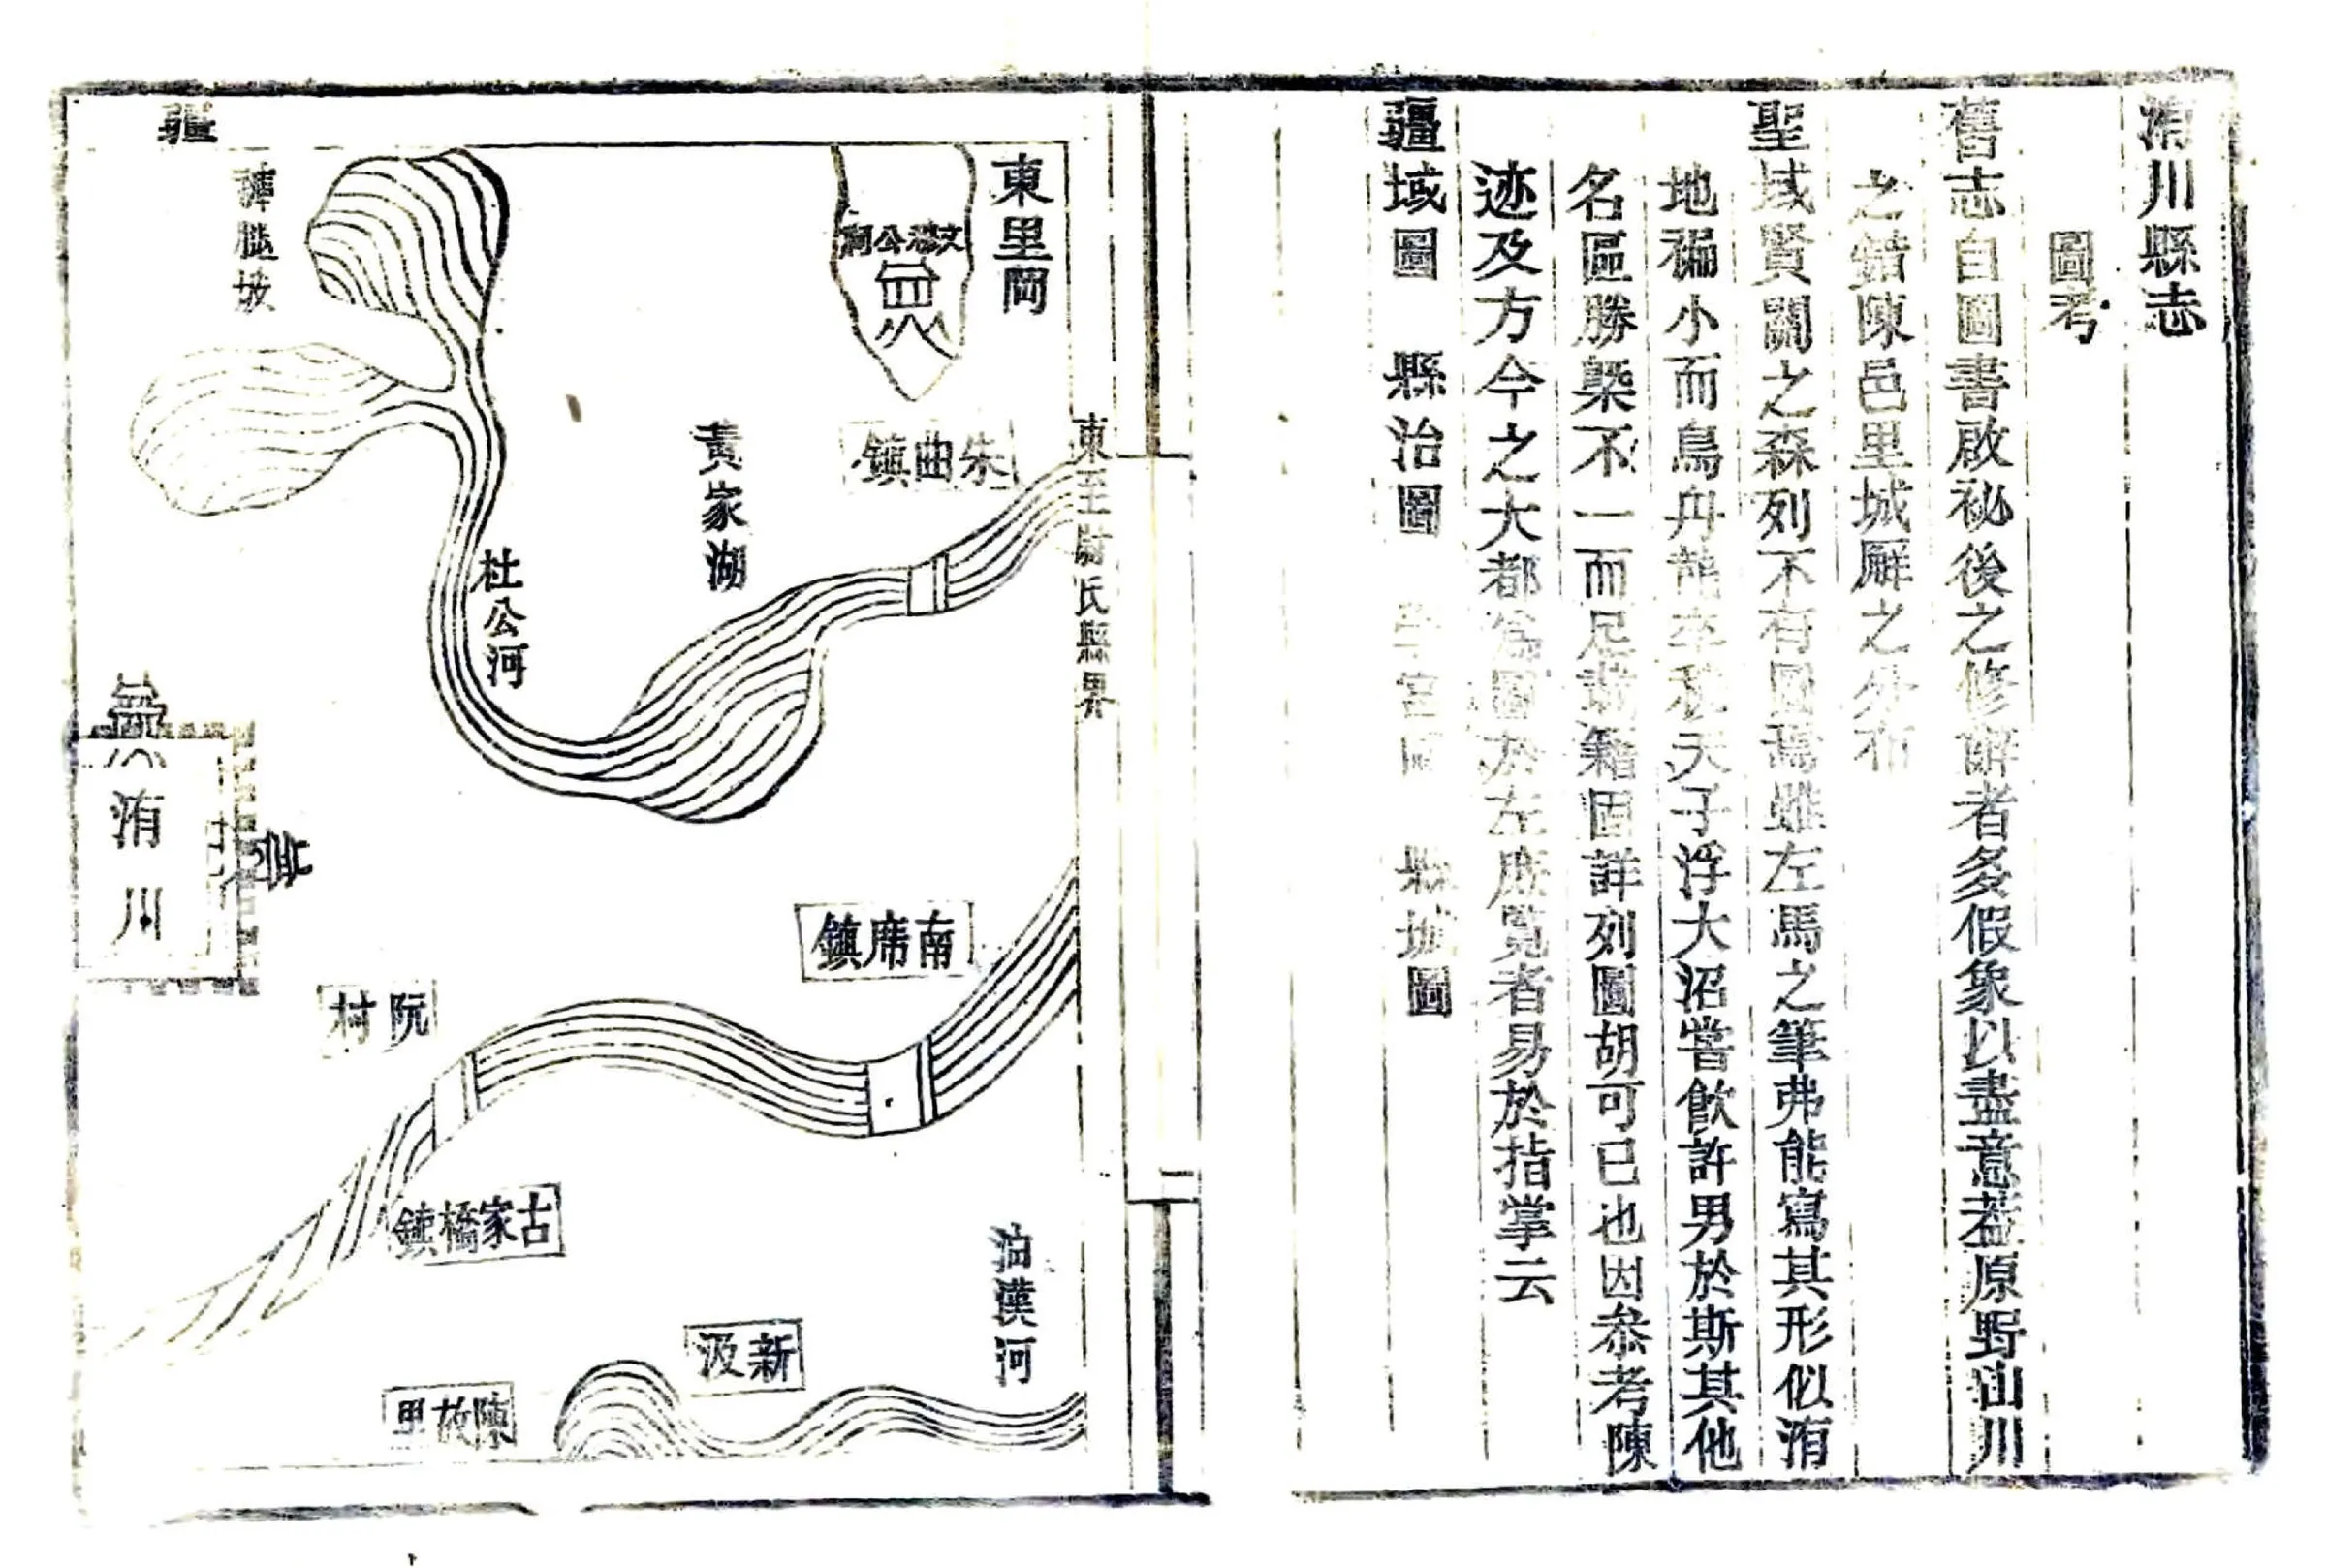 洧川縣志
圖考
舊志自圖書啟祕後之修辭者多假象以盡意葢原野山川
之錯陳邑里城廨之分布
聖域賢關之森列不有圖焉雖左馬之筆弗能寫其形似洧
地褊小而鳥舟龍 天子浮大沼嘗飲許男於斯其他
名區勝槩不一而足載籍固詳列圖胡可已也因叅考陳
迹及方今之大都爲圖於左庶覽者易於指掌云
疆域圖 縣治圖 學宮圖 縣城圖
東至尉氏縣界
東里岡
文 公
朱曲鎮
黃家湖
杜公河
褲腿坡
疆
洧川
南席鎮
阮村
古家橋鎮
油漢河
新汲
陳故里